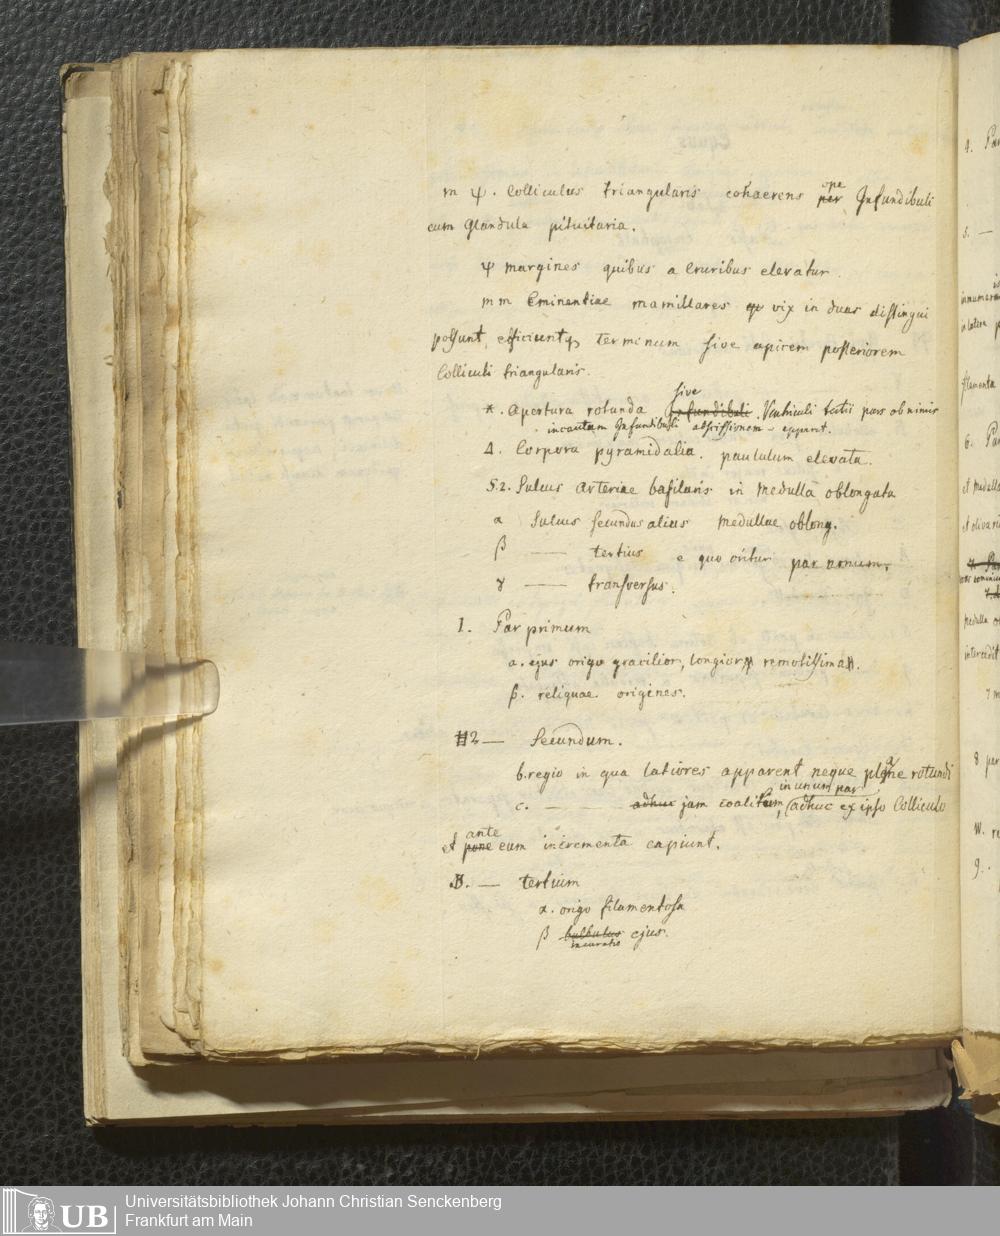 m ψ. Colliculus triangularis cohaerens per ope Infundibuli
cum Glandula pituitaria.
ψ margines quibus a Cruribus elevatur.
m m Eminentiae mamillares vix in duas distingui
possunt, efficiuntq terminum sive apicem posteriorem
Colliculi triangularis.
*. Apertura rotunda Infundibuli sive Ventriculi tertii pars ob nimis
incautam Infundibuli abscissionem apparet.
Δ. Corpora pyramidalia. paululum elevata.
S.2. Sulcus Arteriae basilaris in Medulla oblongata
α Sulcus secundus alius Medullae oblong.
β —— tertius e quo oritur par nonum.
γ —— transversus.
1. Par primum
a. ejus origo gracilior, longior, remotissima.
β. reliquae origines.
2 — Secundum.
b. regio in qua latiores apparent neque plane rotundi
c. —— adhuc jam in unum par coalitum, adhuc ex ipso Colliculo
et pone ante eum incrementa capiunt.
3. — tertium
α. origo filamentosa
β bulbulus ejus.
4. Par
5. —
6. Par
et Medulla